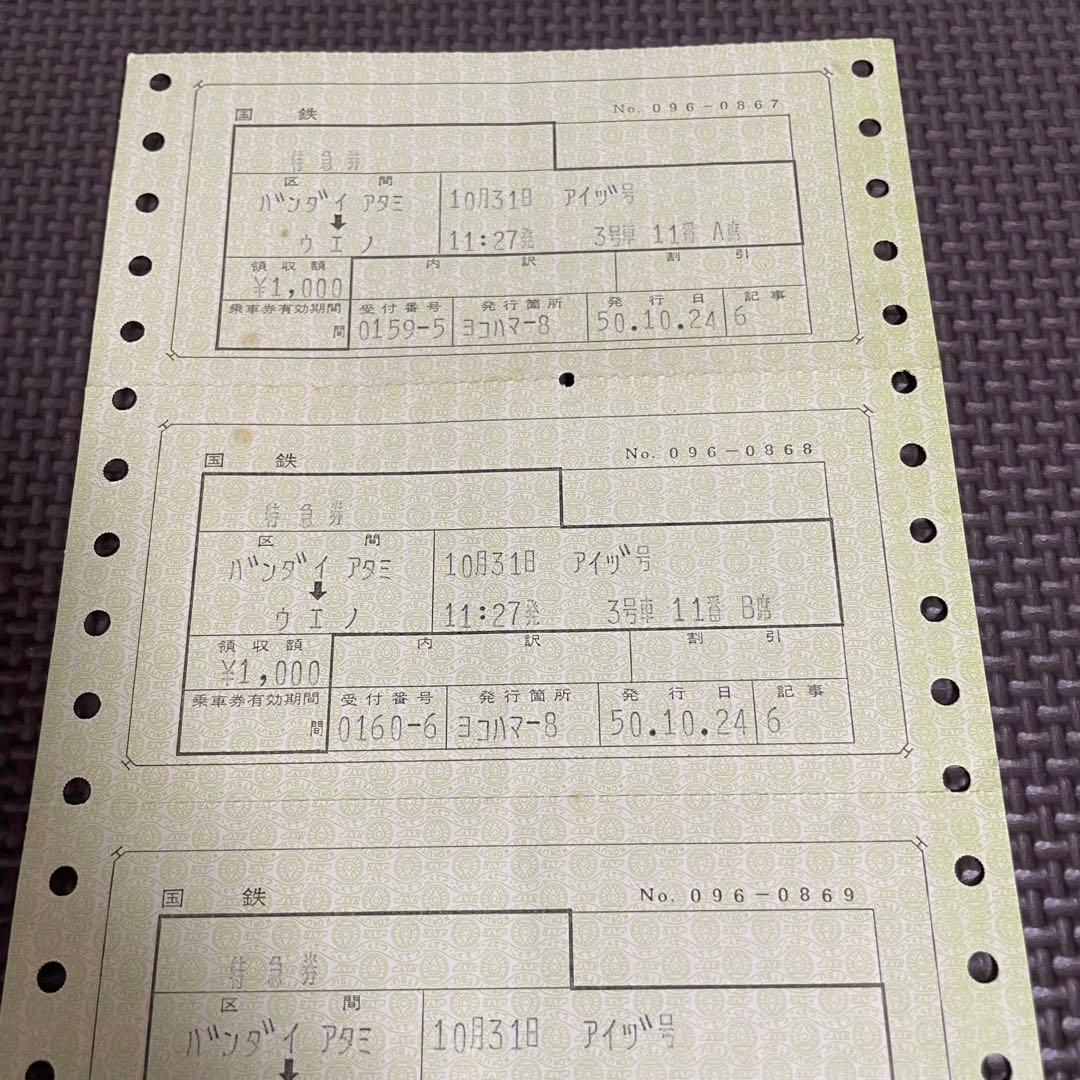 国鉄 No. 096-0867
特急券
区間
バンダイ アタミ 10月31日 アイヅ号
⬇
ウエノ 11:27発 3号車 11番 A席
領収額 内訳 割引
¥1,000
乗車券有効期間 受付番号 発行箇所 発行日 記事
間 0159-5 ヨコハマ-8 50.10.24 6
国鉄 No. 096-0868
特急券
区間
バンダイ アタミ 10月31日 アイヅ号
⬇
ウエノ 11:27発 3号車 11番 B席
領収額 内訳 割引
¥1,000
乗車券有効期間 受付番号 発行箇所 発行日 記事
間 0160-6 ヨコハマ-8 50.10.24 6
国鉄 No. 096-0869
特急券
区間
バンダイ アタミ 10月31日 アイヅ号
⬇